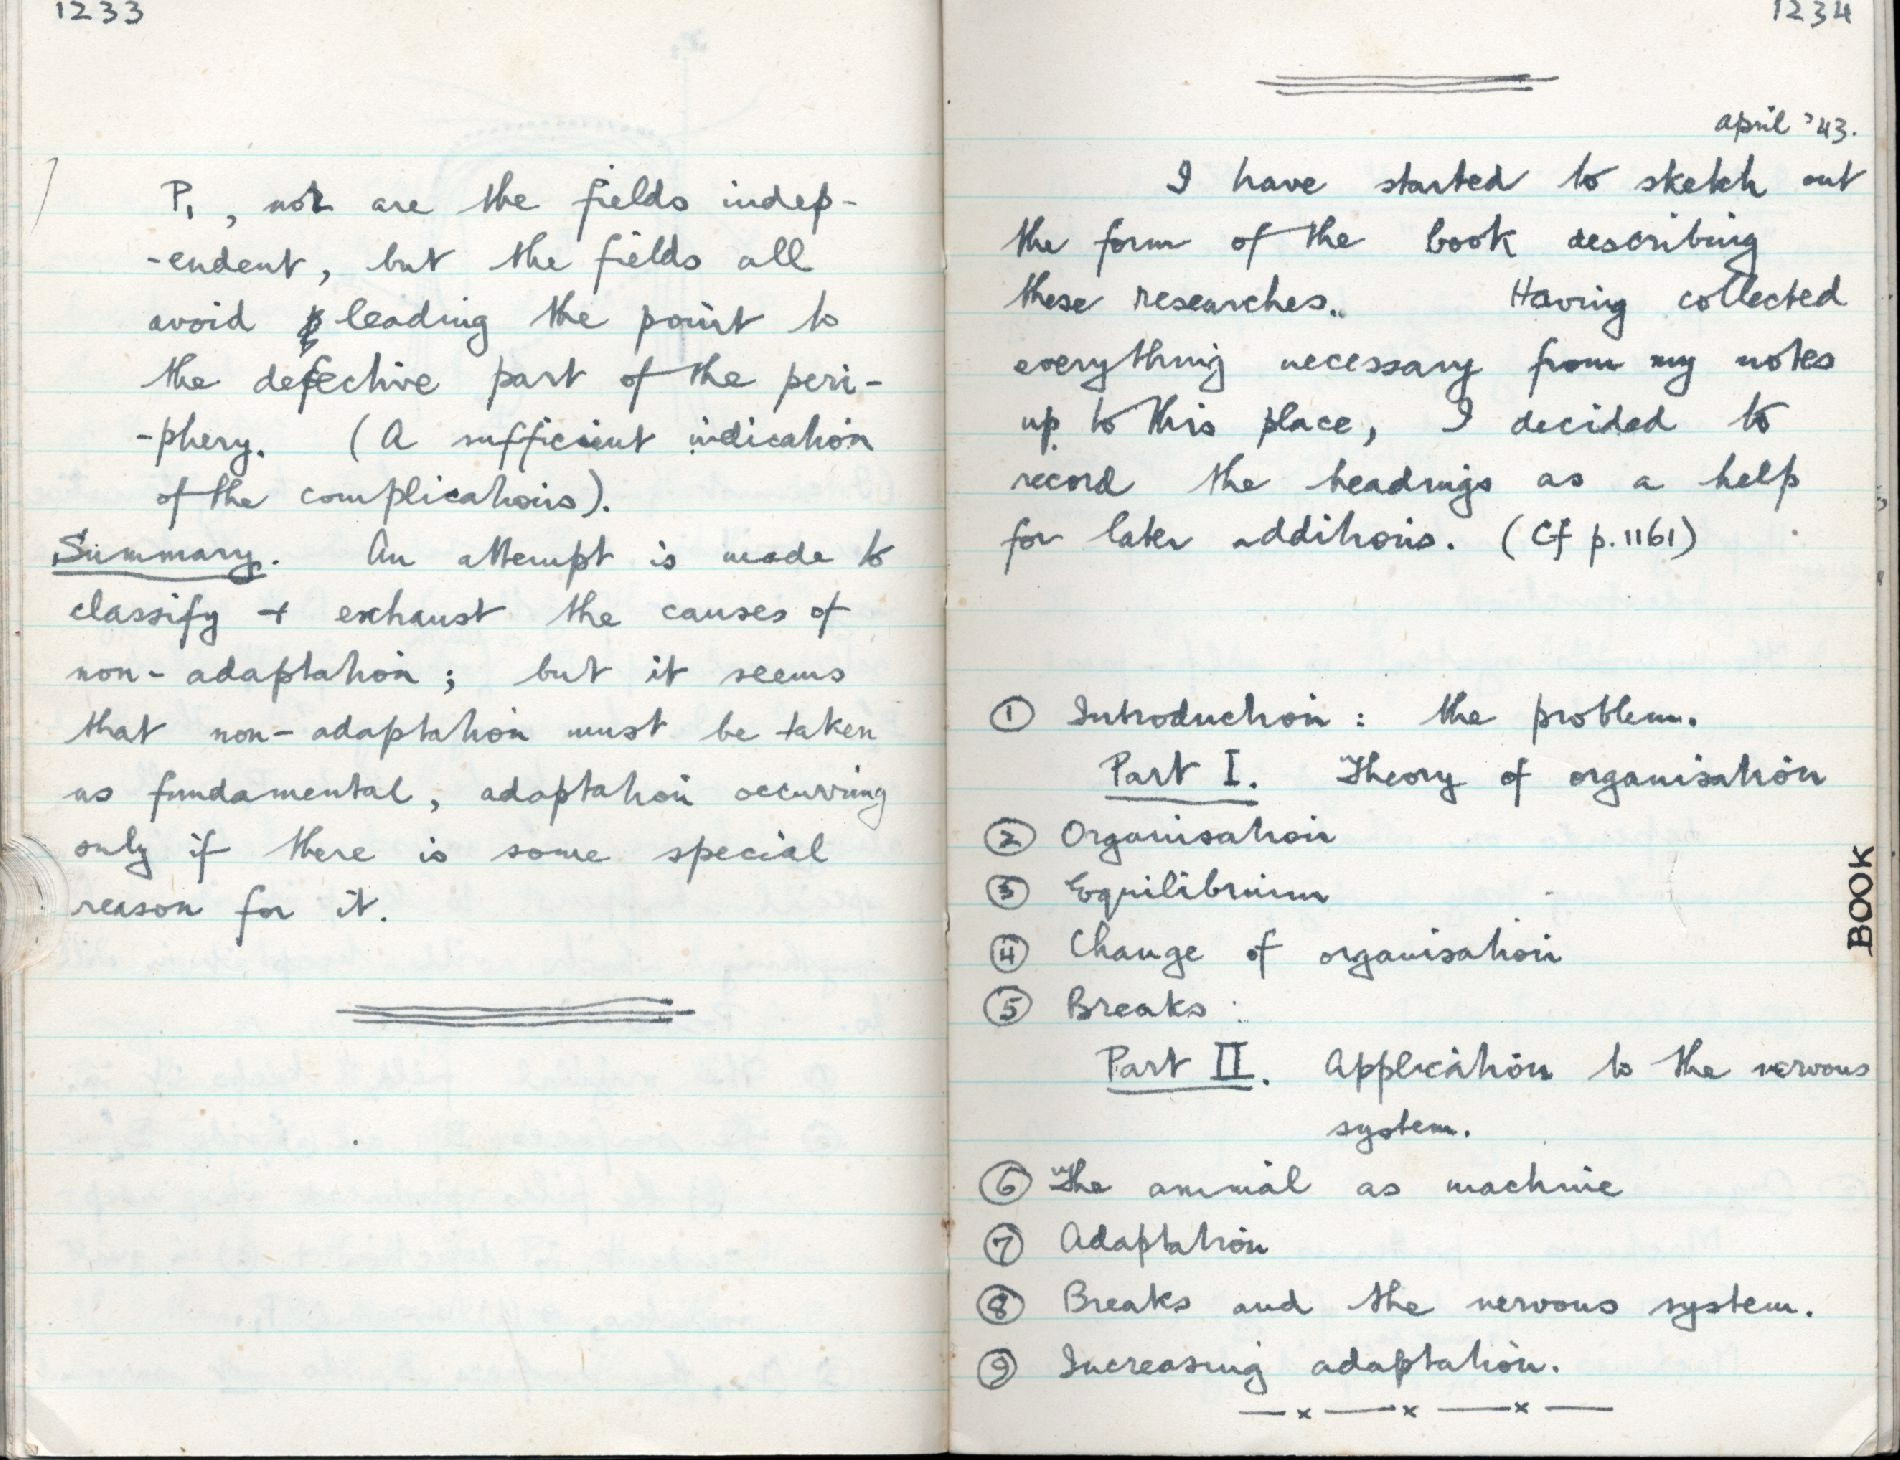 1233
P₁, not are the fields indep-
-endent, but the fields all
avoid leading the point to
the defective part of the peri-
-phery. (A sufficient indication
of the complications).
Summary. An attempt is made to
classify + exhaust the causes of
non-adaptation; but it seems
that non-adaptation must be taken
as fundamental, adaptation occurring
only if there is some special
reason for it.
1234
April '43.
I have started to sketch out
the form of the book describing
these researches.. Having collected
everything necessary from my notes
up to this place, I decided to
record the headings as a help
for later additions. (Cf p.1161)
① Introduction: the problem.
Part I. Theory of organisation
② Organisation
③ Equilibrium
④ Change of organisation
⑤ Breaks:
Part II. Application to the nervous
system.
⑥ The animal as machine
⑦ Adaptation
⑧ Breaks and the nervous system.
⑨ Increasing adaptation.
— x — x — x —
BOOK